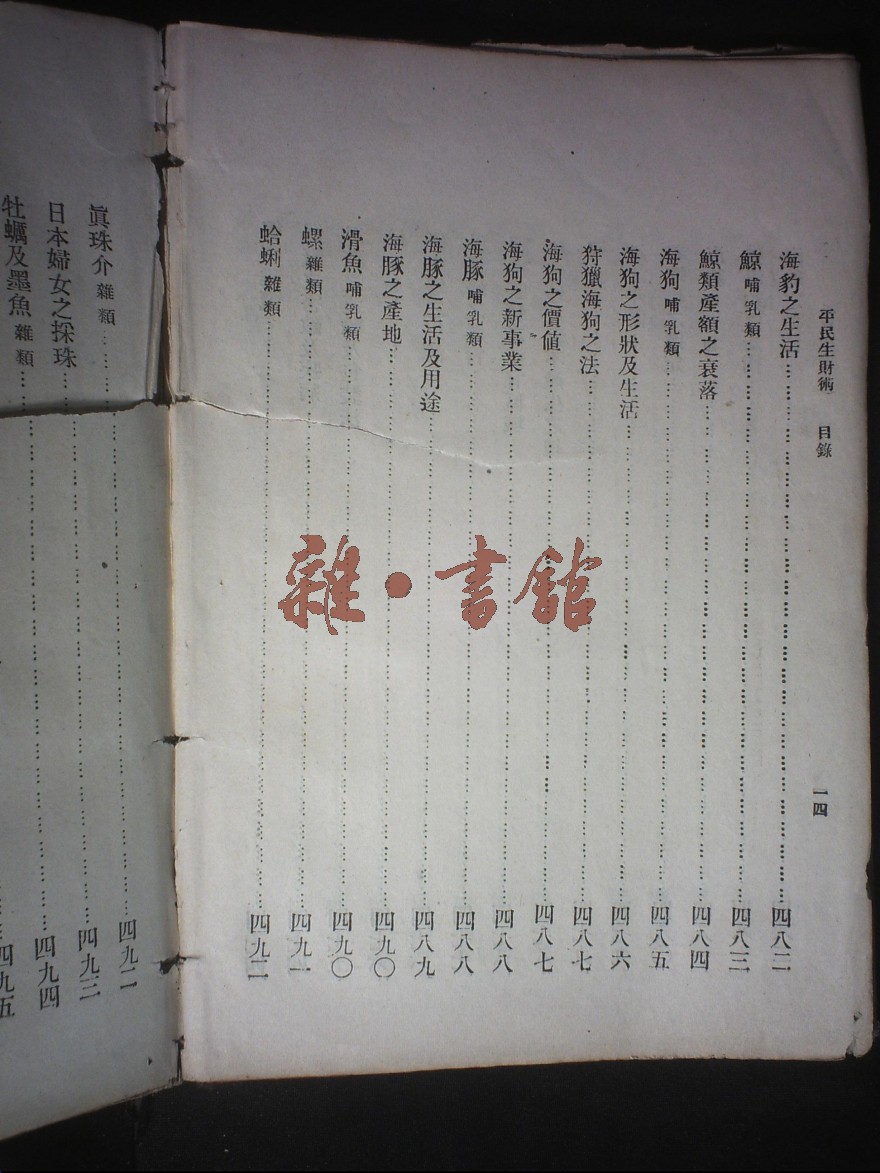 平民生財術 目錄 一四
海豹之生活……四八二
鯨 哺乳類……四八三
鯨類產額之衰落……四八四
海狗 哺乳類……四八五
海狗之形狀及生活……四八六
狩獵海狗之法……四八七
海狗之價値……四八七
海狗之新事業……四八八
海豚 哺乳類……四八八
海豚之生活及用途……四八九
海豚之產地……四九〇
滑魚 哺乳類……四九〇
螺 雜類……四九一
蛤蜊 雜類……四九二
眞珠介 雜類……四九二
日本婦女之採珠……四九三
牡蠣及墨魚 雜類……四九四
四九五
雜·書館